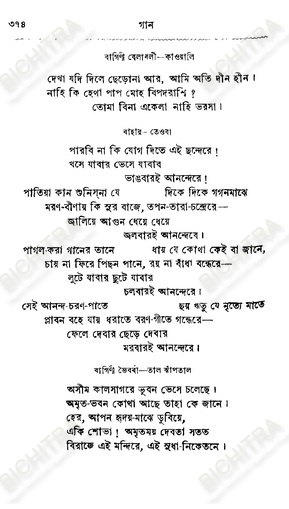 ৩৭৪
গান
রাগিণী বেলাবলী—কাওয়ালি
দেখা যদি দিলে ছেড়োনা আর, আমি অতি দীন হীন।
নাহি কি হেথা পাপ মোহ বিপদরাশি ?
তোমা বিনা একেলা নাহি ভরসা।
বাহার- তেওরা
পারবি না কি যোগ দিতে এই ছন্দেরে!
খসে যাবার ভেসে যাবার
ভাঙবারই আনন্দেরে!
পাতিয়া কান শুনিস্‌না যে দিকে দিকে গগনমাঝে
মরণ-বীণায় কি সুর বাজে, তপন-তারা-চন্দ্রেরে—
জালিয়ে আগুন ধেয়ে ধেয়ে
জলবারই আনন্দেরে।
পাগল-করা গানের তানে ধায় যে কোথা কেই বা জানে,
চায় না ফিরে পিছন পানে, রয় না বাঁধা বন্ধেরে—
লুটে যাবার ছুটে যাবার
চলবারই আনন্দেরে।
সেই আনন্দ-চরণ-পাতে ছয় ঋতু যে নৃত্যে মাতে
প্লাবন বহে যায় ধরাতে বরণ-গীতে গন্ধেরে—
ফেলে দেবার ছেড়ে দেবার
মরবারই আনন্দেরে।
রাগিণী ভৈরবী—তাল ঝাঁপতাল
অসীম কালসাগরে ভুবন ভেসে চলেছে।
অমৃত-ভবন কোথা আছে তাহা কে জানে।
হের, আপন হৃদয়-মাঝে ডুবিয়ে,
একি শোভা! অমৃতময় দেবতা সতত
বিরাজে এই মন্দিরে, এই সুধা-নিকেতনে।
BICHITRA